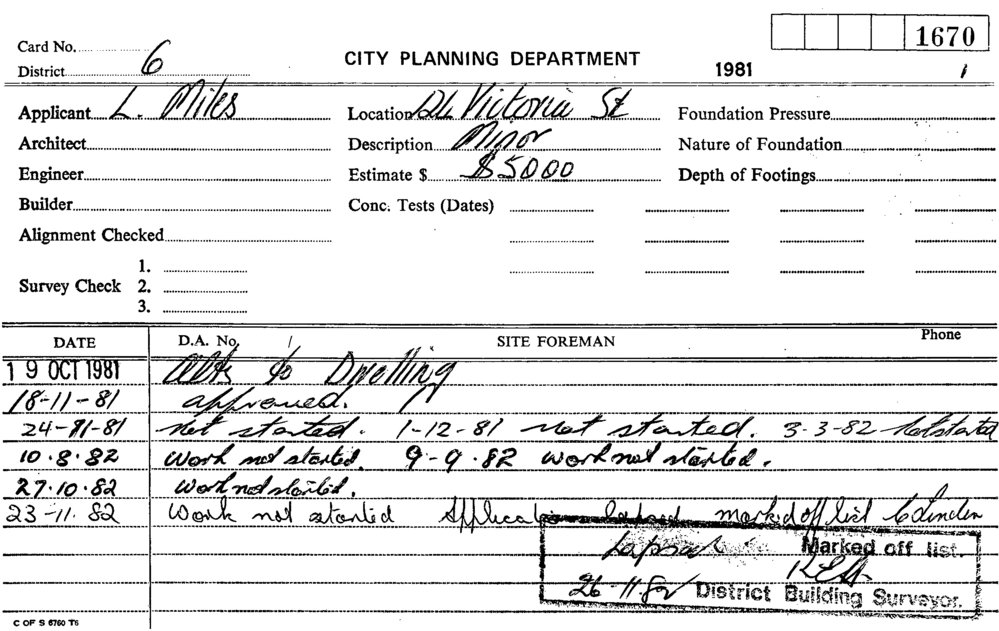 1670
Card No.
District 6
CITY PLANNING DEPARTMENT
1981
Applicant L. Miles
Location Victoria St
Foundation Pressure
Architect
Description Minor
Nature of Foundation
Engineer
Estimate $ $5000
Depth of Footings
Builder
Conc. Tests (Dates)
Alignment Checked
Survey Check
1.
2.
3.
DATE D.A. No. SITE FOREMAN Phone
19 OCT 1981 Alts to Dwelling
18-11-81 approved.
24-11-81 Not started. 1-12-81 Not started. 3-3-82 Not started
10.8.82 Work not started. 9-9.82 work not started.
27.10.82 Work not started.
23-11.82 Work not started Applicat lapsed marked off list
Lapsed Marked off list.
26-11-82 District Building Surveyor.
C OF S 6760 T6